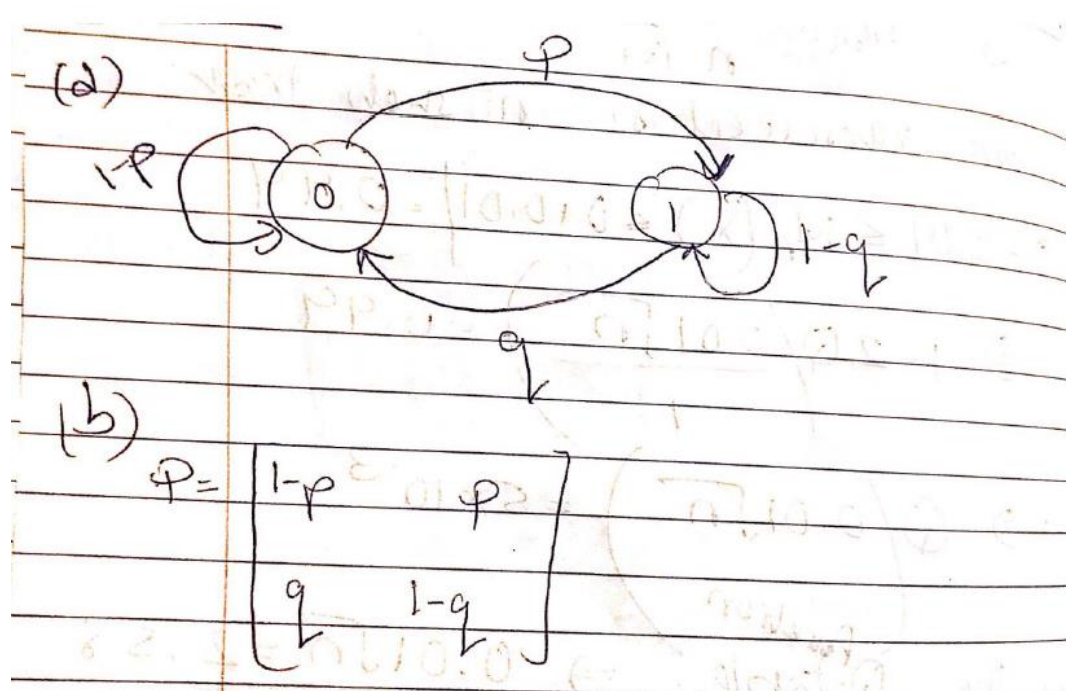 (a)
p
1-p
0
1
1-q
q
(b)
P = [ 1-p p
q 1-q ]